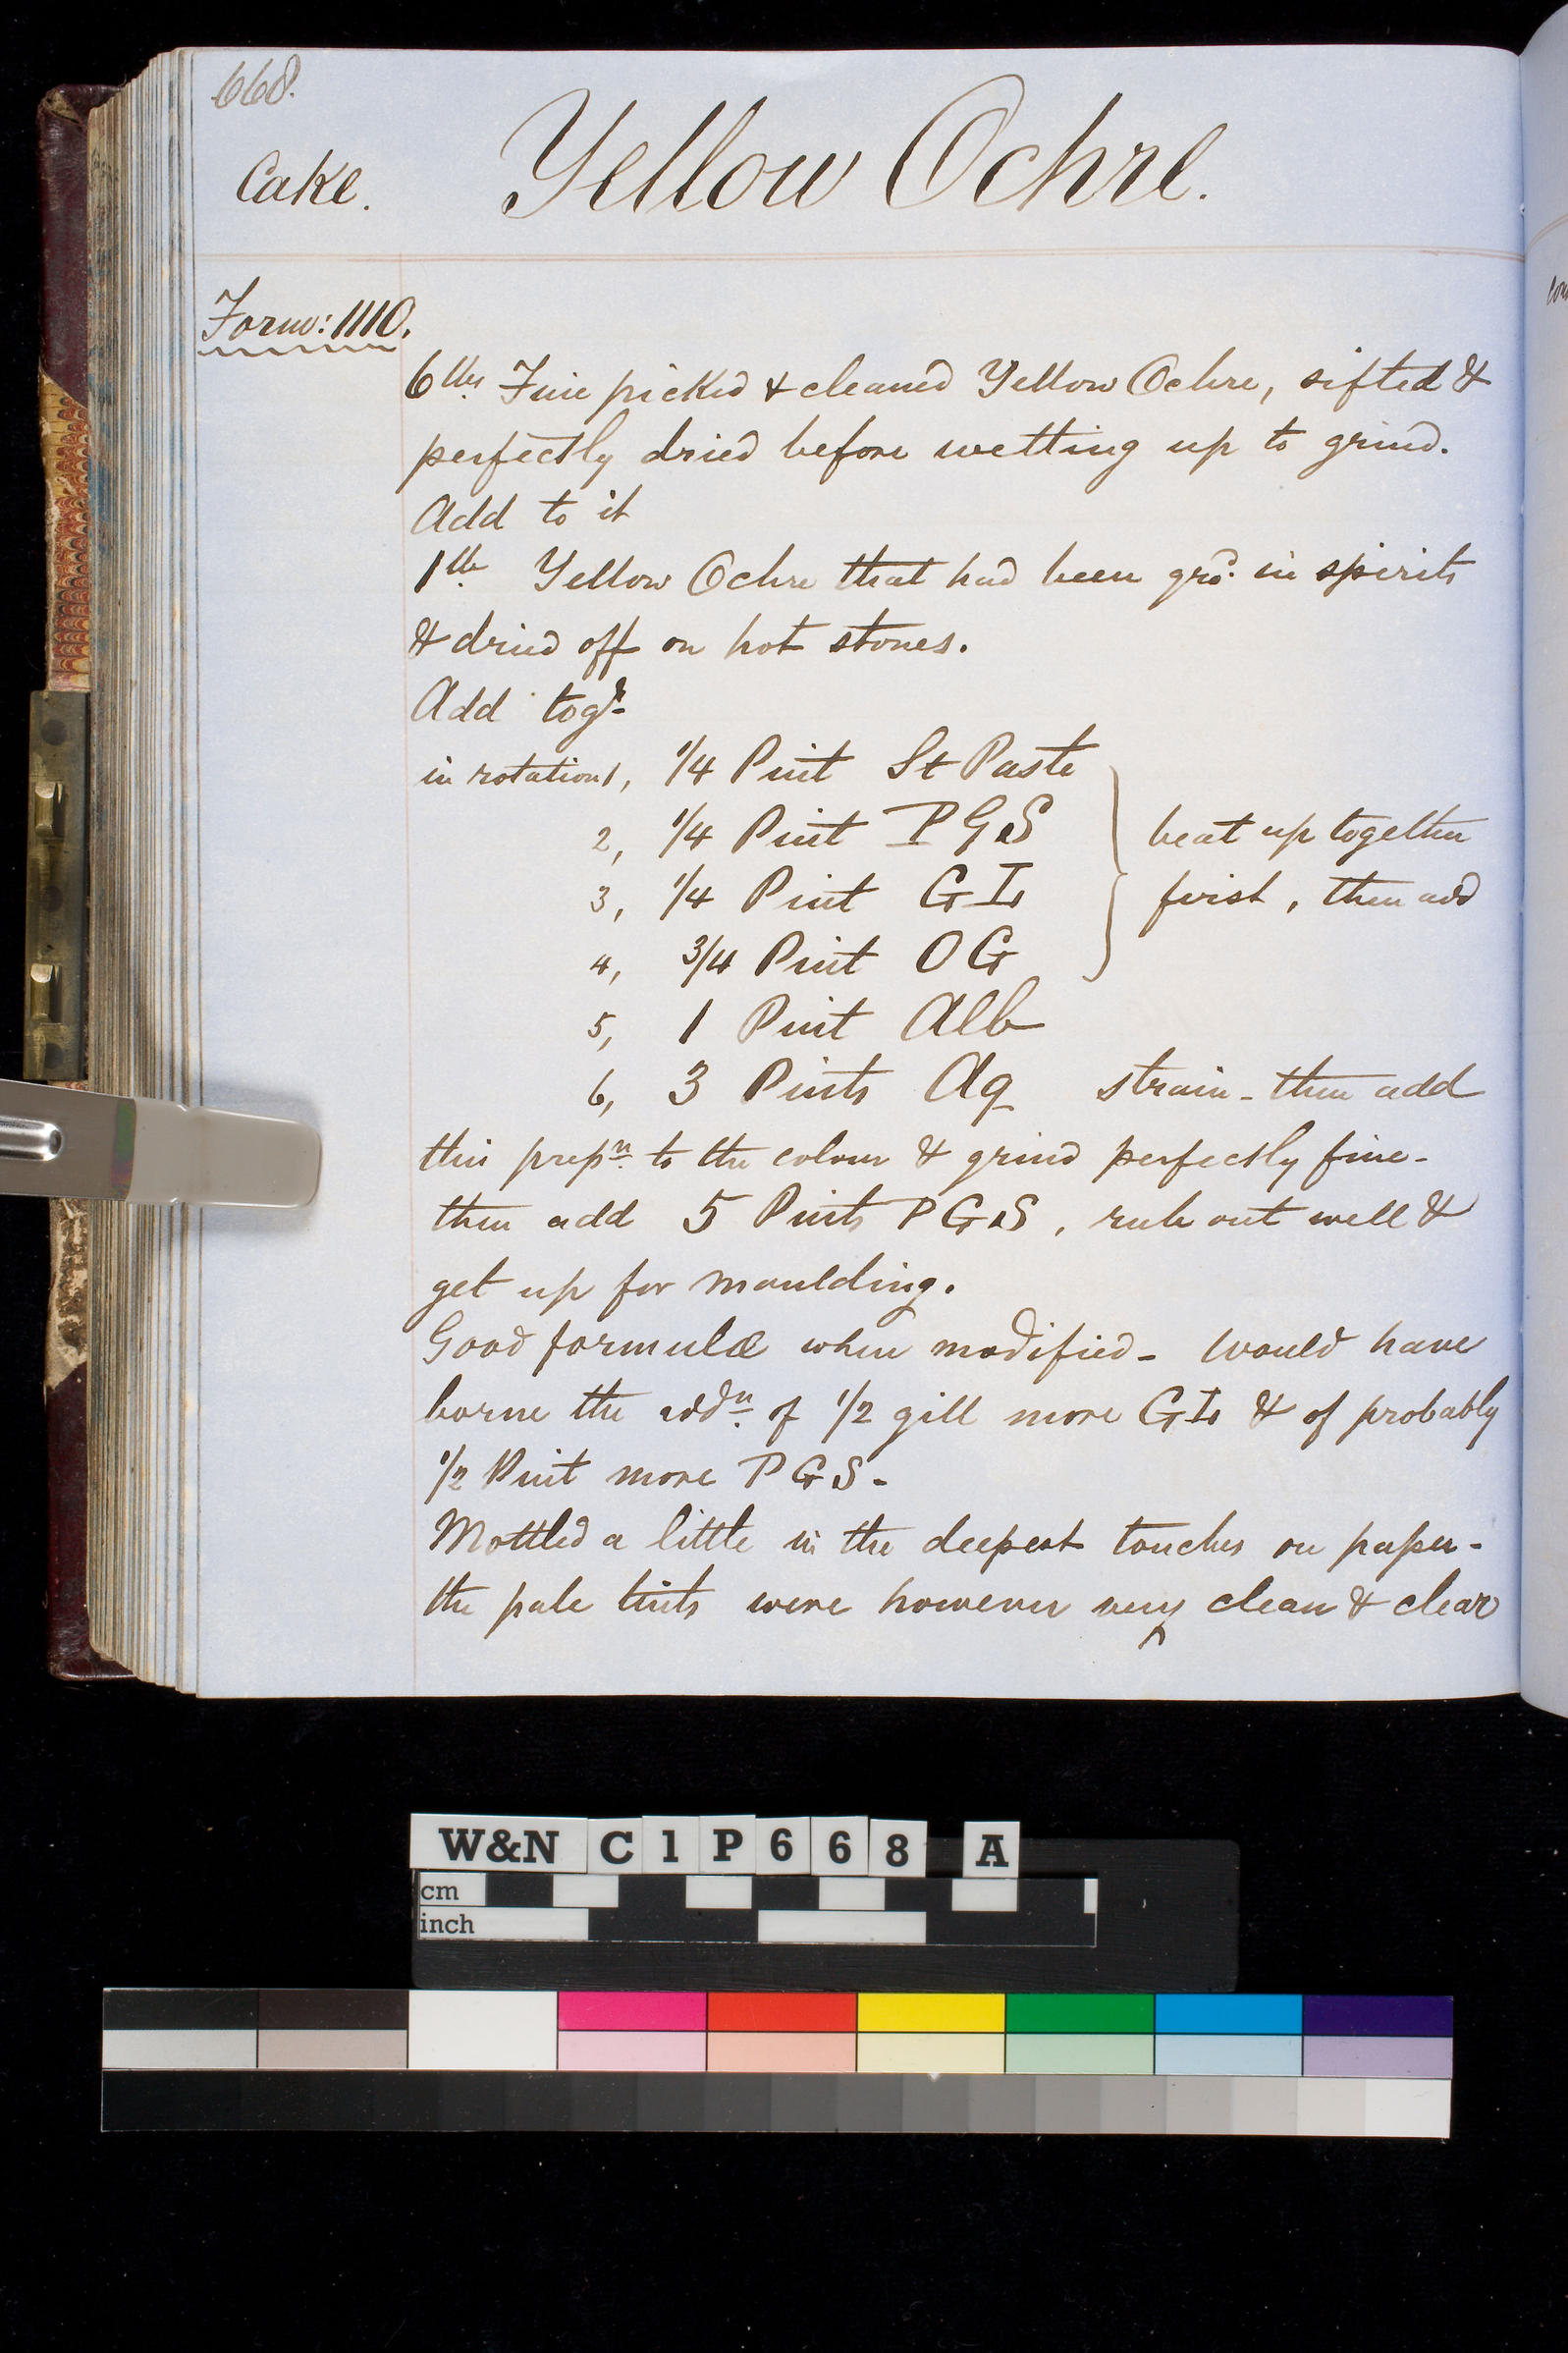 668.
Cake. Yellow Ochre.
Form: 1110.
6 lbs Fine picked & cleaned Yellow Ochre, sifted &
perfectly dried before wetting up to grind.
Add to it
1 lb Yellow Ochre that had been grd. in spirits
& dried off on hot stones.
Add togr.
in rotation 1, 1/4 Pint St Paste
2, 1/4 Pint PGS beat up together
3, 1/4 Pint GL first, then add
4, 3/4 Pint OG
5, 1 Pint Alb
6, 3 Pints Aq strain - then add
this prepn. to the colour & grind perfectly fine -
then add 5 Pints PGS, rub out well &
get up for moulding.
Good formulæ when modified - Would have
borne the addn. of 1/2 gill more GL & of probably
1/2 Pint more PGS -
Mottled a little in the deepest touches on paper -
the pale tints were however very clean & clear
W&N C1P668 A
cm
inch